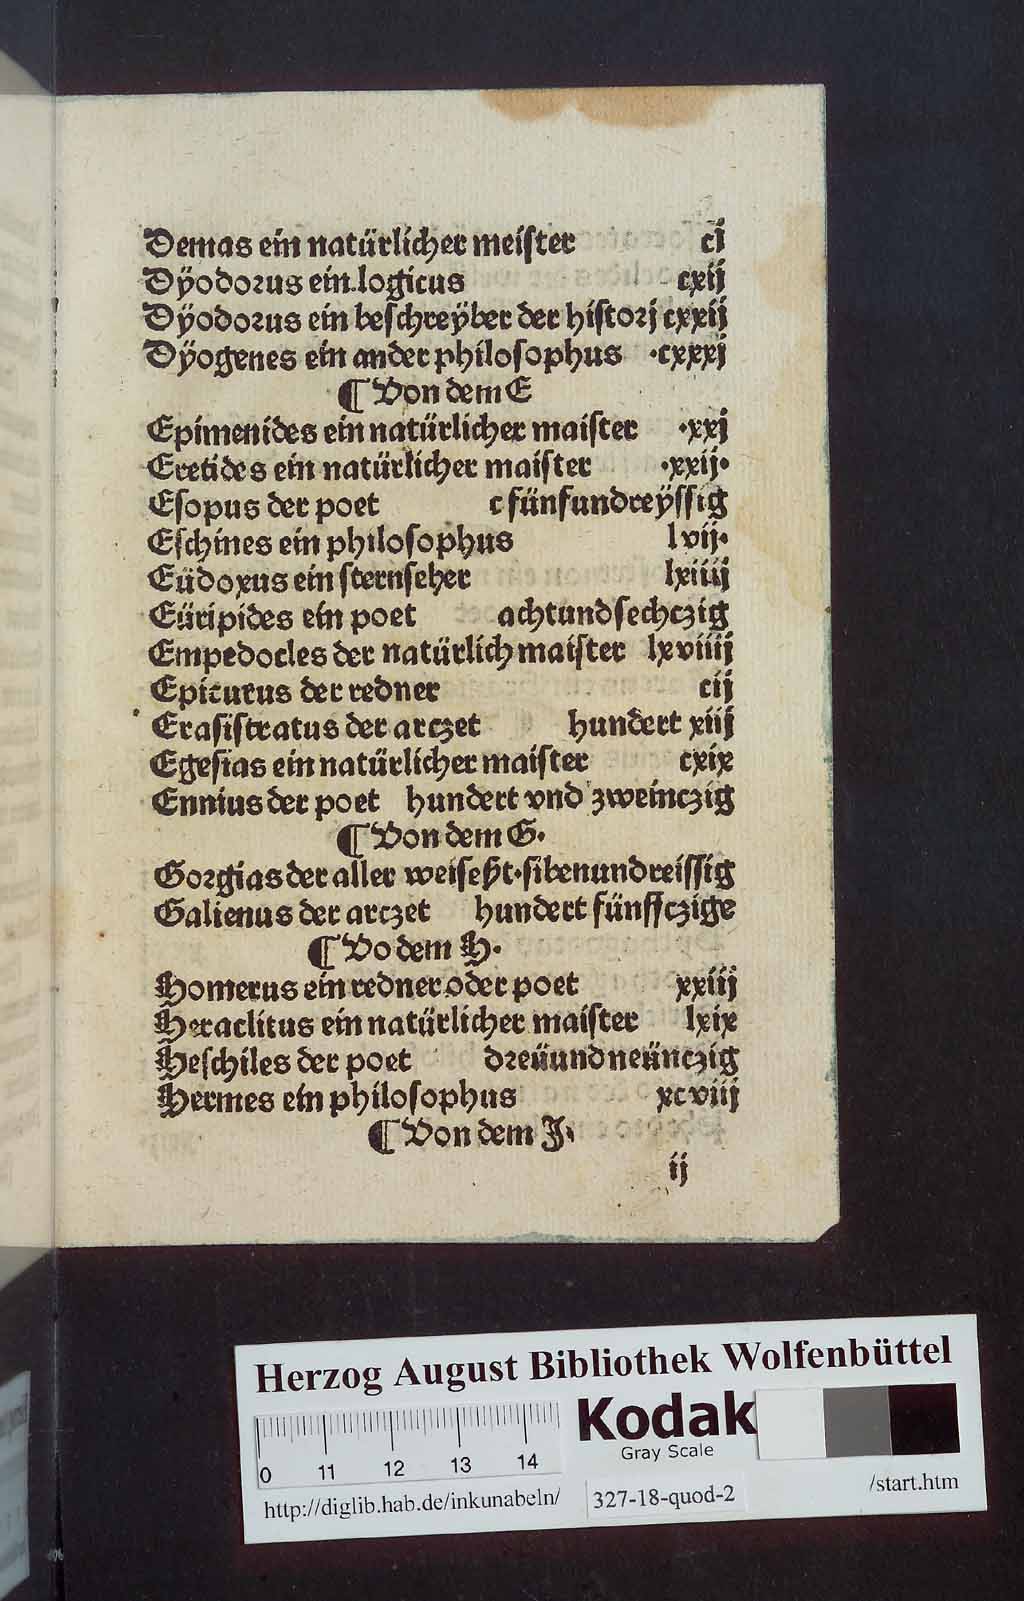 Demas ein natürlicher meister ci
Dÿodorus ein logicus cxij
Dÿodorus ein beschreÿber der historj cxxij
Dÿogenes ein ander philosophus ·cxxxj
¶ Von dem E
Epimenides ein natürlicher maister ·xxj
Eretides ein natürlicher maister ·xxij·
Esopus der poet c fünfundreÿssig
Eschines ein philosophus lvij·
Eüdoxus ein sternseher lxiiij
Eüripides ein poet achtundsechczig
Empedocles der natürlich maister lxviiij
Epicurus der redner cij
Erasistratus der arczet hundert xiij
Egesias ein natürlicher maister cxix
Ennius der poet hundert vnd zweinczig
¶ Von dem G·
Gorgias der aller weisest·sibenundreissig
Galienus der arczet hundert fünffczige
¶ Vo dem H·
Homerus ein redner oder poet xxiij
Heraclitus ein natürlicher maister lxix
Heschiles der poet dreüundneünczig
Hermes ein philosophus xcviij
¶ Von dem J·
ij
Herzog August Bibliothek Wolfenbüttel
Kodak
Gray Scale
0 11 12 13 14
http://diglib.hab.de/inkunabeln/
327-18-quod-2
/start.htm